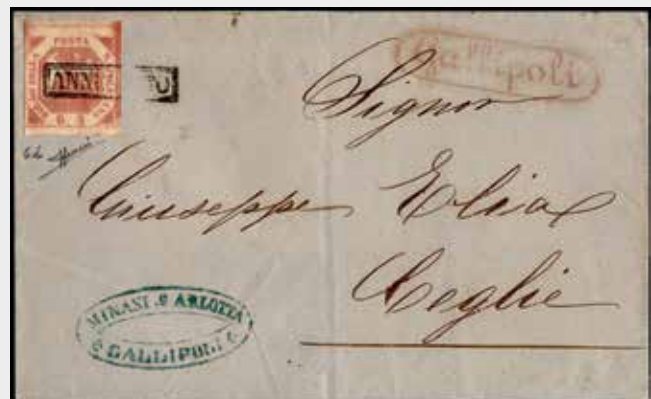 POSTA
ANNULLATO
Gallipoli
Signor
Giuseppe Elia
Ceglie
MINASI & ARLOTTA
GALLIPOLI